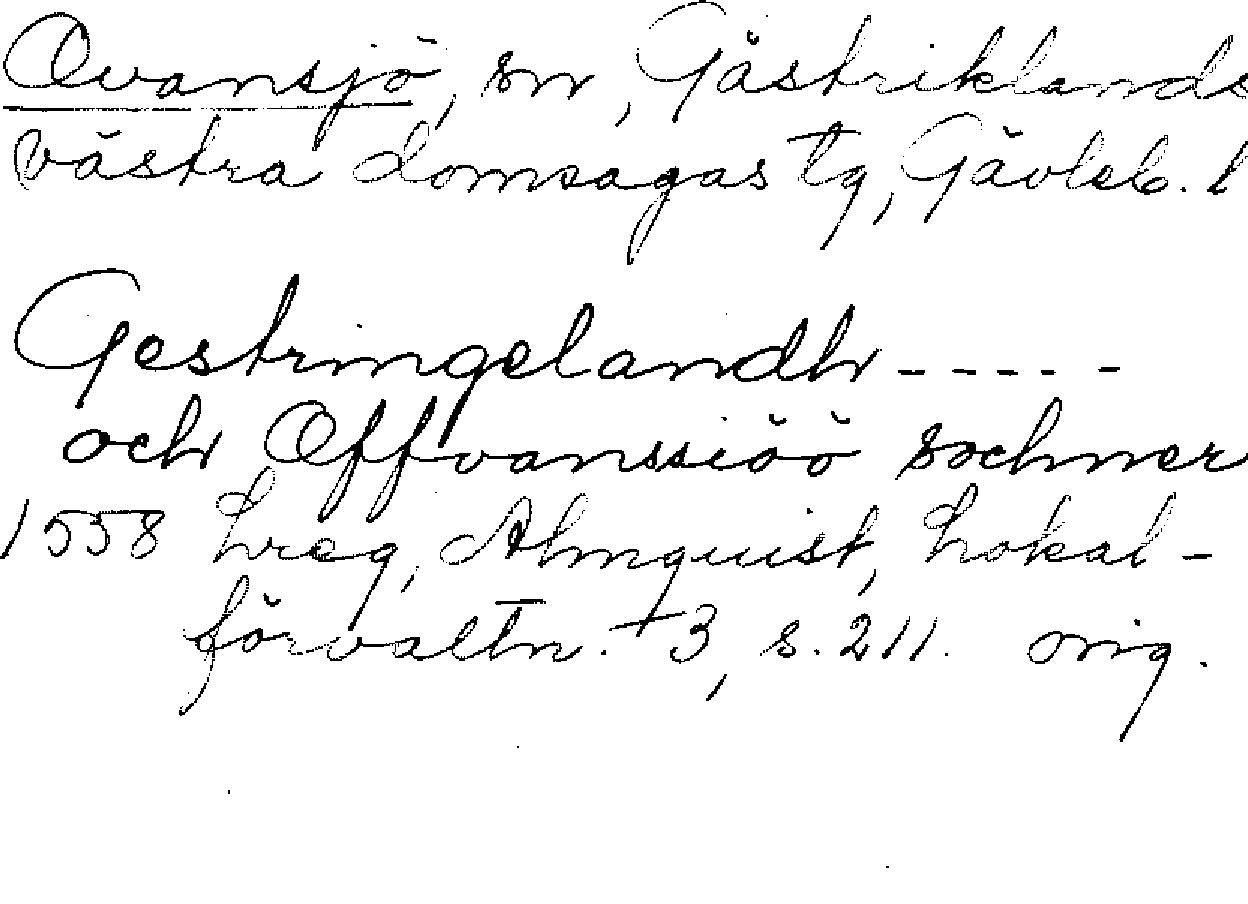 Ovansjö, sn, Gästriklands
västra domsagas tg, Gävleb. l
Gestringelandh -----
och Offvanssiöö sochner
1558 Lreg, Almquist, Lokal-
förvaltn. +3, s. 211. orig.